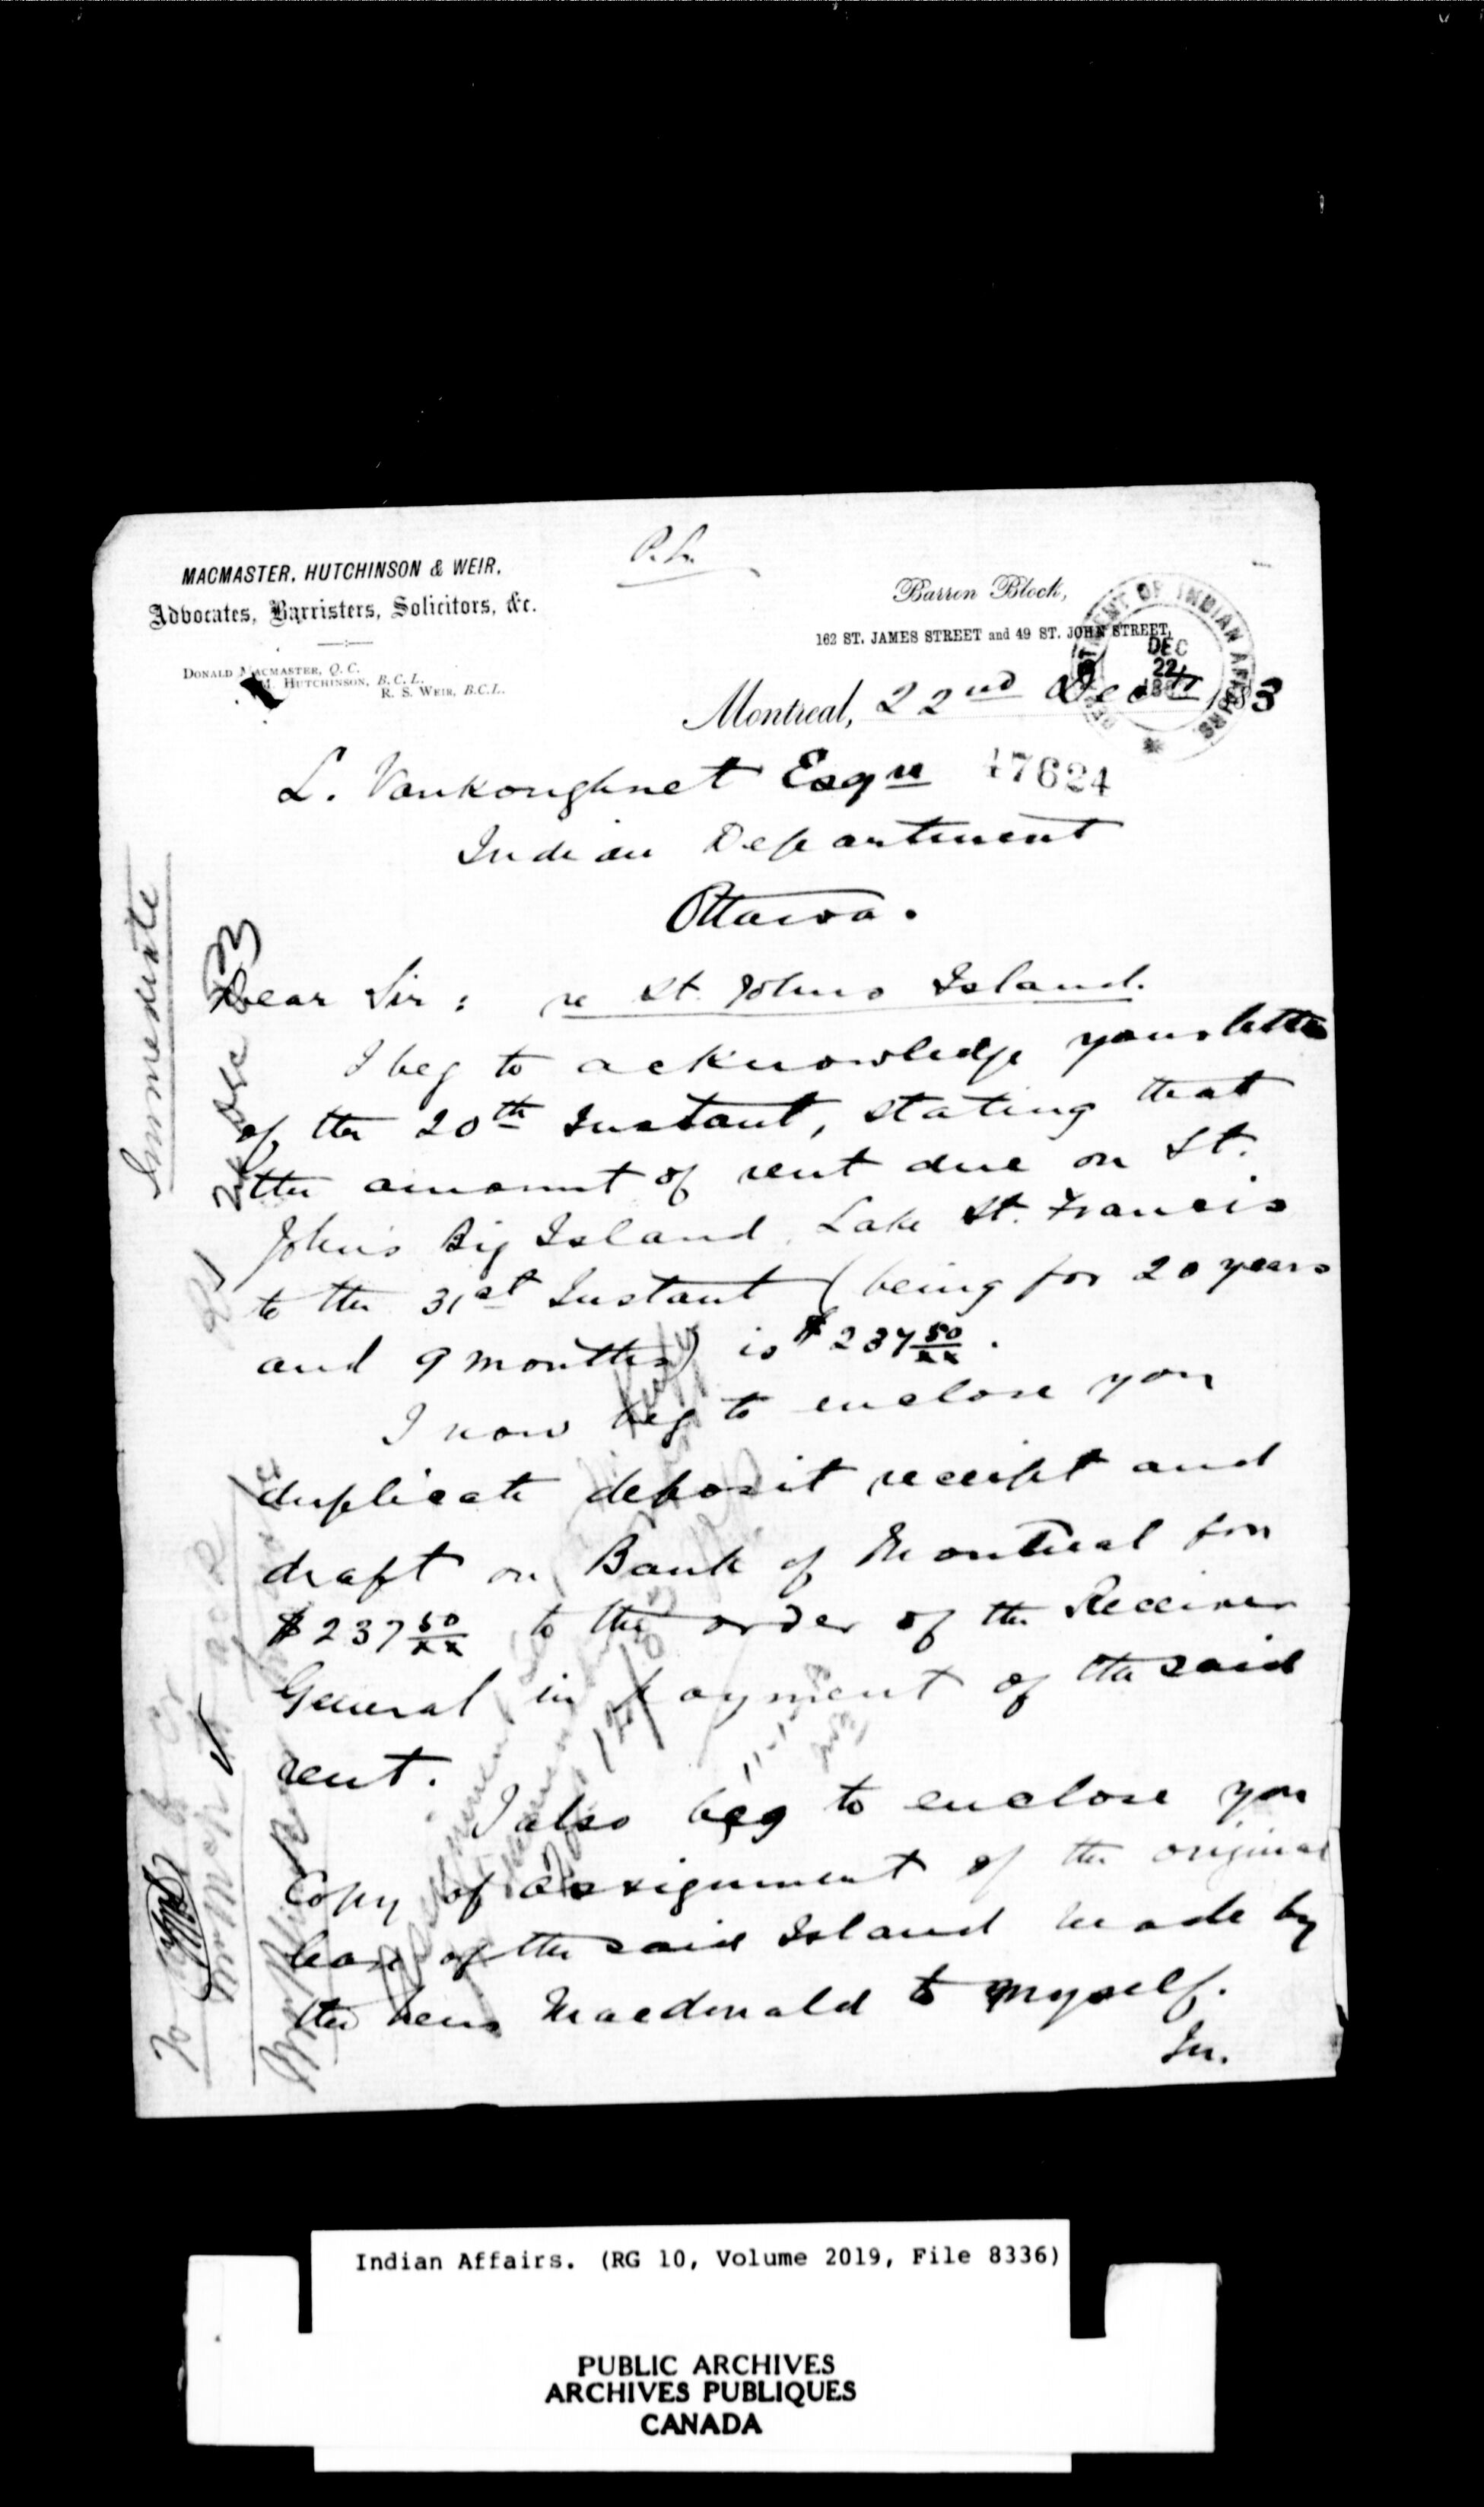 P.L.
MACMASTER, HUTCHINSON & WEIR.
Advocates, Barristers, Solicitors, &c.
DONALD MACMASTER, Q.C.
M. HUTCHINSON, B.C.L.
R. S. WEIR, B.C.L.
Barron Block,
162 ST. JAMES STREET and 49 ST. JOHN STREET,
DEPARTMENT OF INDIAN AFFAIRS
DEC
22
Montreal, 22nd Dec 1883
47624
L. Vankoughnet Esqre
Indian Department
Ottawa.
Dear Sir: re St. Johns Island.
I beg to acknowledge your letter
of the 20th Instant, stating that
the amount of rent due on St.
John's Big Island, Lake St. Francis
to the 31st Instant (being for 20 years
and 9 months) is $237 50/xx.
I now beg to enclose you
duplicate deposit receipt and
draft on Bank of Montreal for
$237 50/xx to the order of the Receiver
General in payment of the said
rent.
I also beg to enclose you
Copy of assignment of the original
lease of the said Island made by
the heirs Macdonald to myself.
In.
Immediate
Indian Affairs. (RG 10, Volume 2019, File 8336)
PUBLIC ARCHIVES
ARCHIVES PUBLIQUES
CANADA